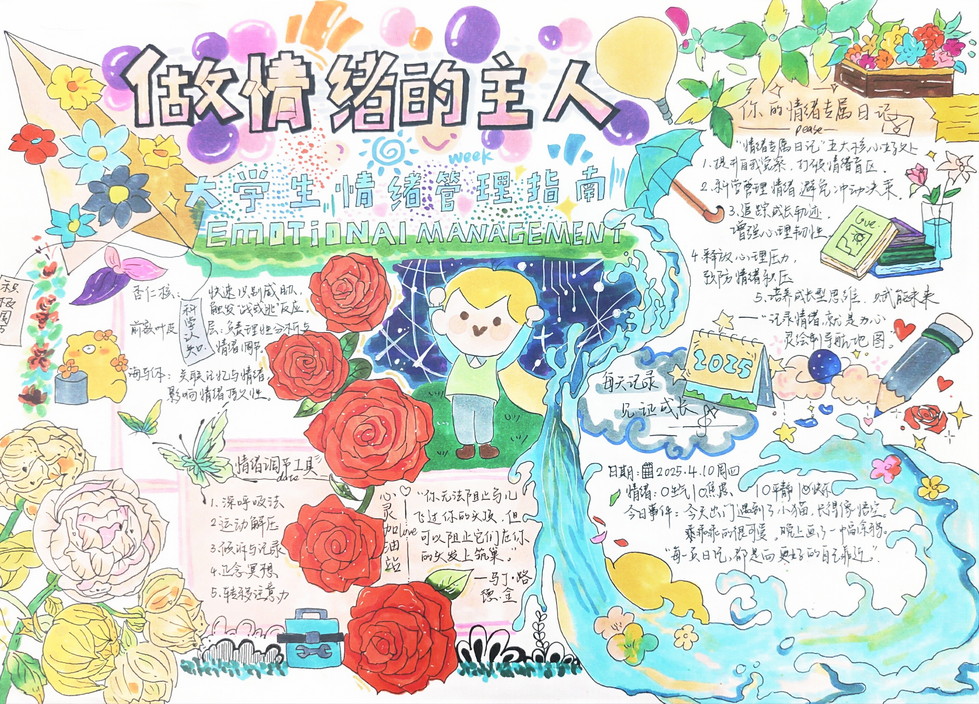 做情绪的主人
week
大学生情绪管理指南
EMOTIONAl MANAGEMENT
杏仁核:
快速识别威胁,
触发"战或逃"反应。
前额叶皮
层:负责理性分析与
情绪调节。
科学认知
海马体: 关联记忆与情绪
影响情绪
情绪调节工具
1.深呼吸法
2.运动解压
3.倾诉与记录
4.正念冥想
5.转移注意力
心灵加油站
love
"你无法阻止鸟儿
飞过你的头顶,但
可以阻止它们在你
的头发上筑巢。"
—马丁·路
德·金
你的情绪专属日记
"情绪专属日记"五大
1.提升自我觉察,打破情绪盲区
2.科学管理情绪 避免冲动决策
3.追踪成长轨迹,
增强心理韧性
4.释放心理压力,
预防情绪积压
5.培养成长型思维,赋能未来
—"记录情绪,就是为心
灵绘制导航地图。
每天记录
见证成长
2025
日期: 2025.4.10 周四
情绪: 生气 焦虑 平静 快乐
今日事件: 今天出门遇到了小猫,长得像悟空,
乖乖的很可爱,晚上画了一幅涂鸦。
"每一页日记,都是向更好的自己靠近。"